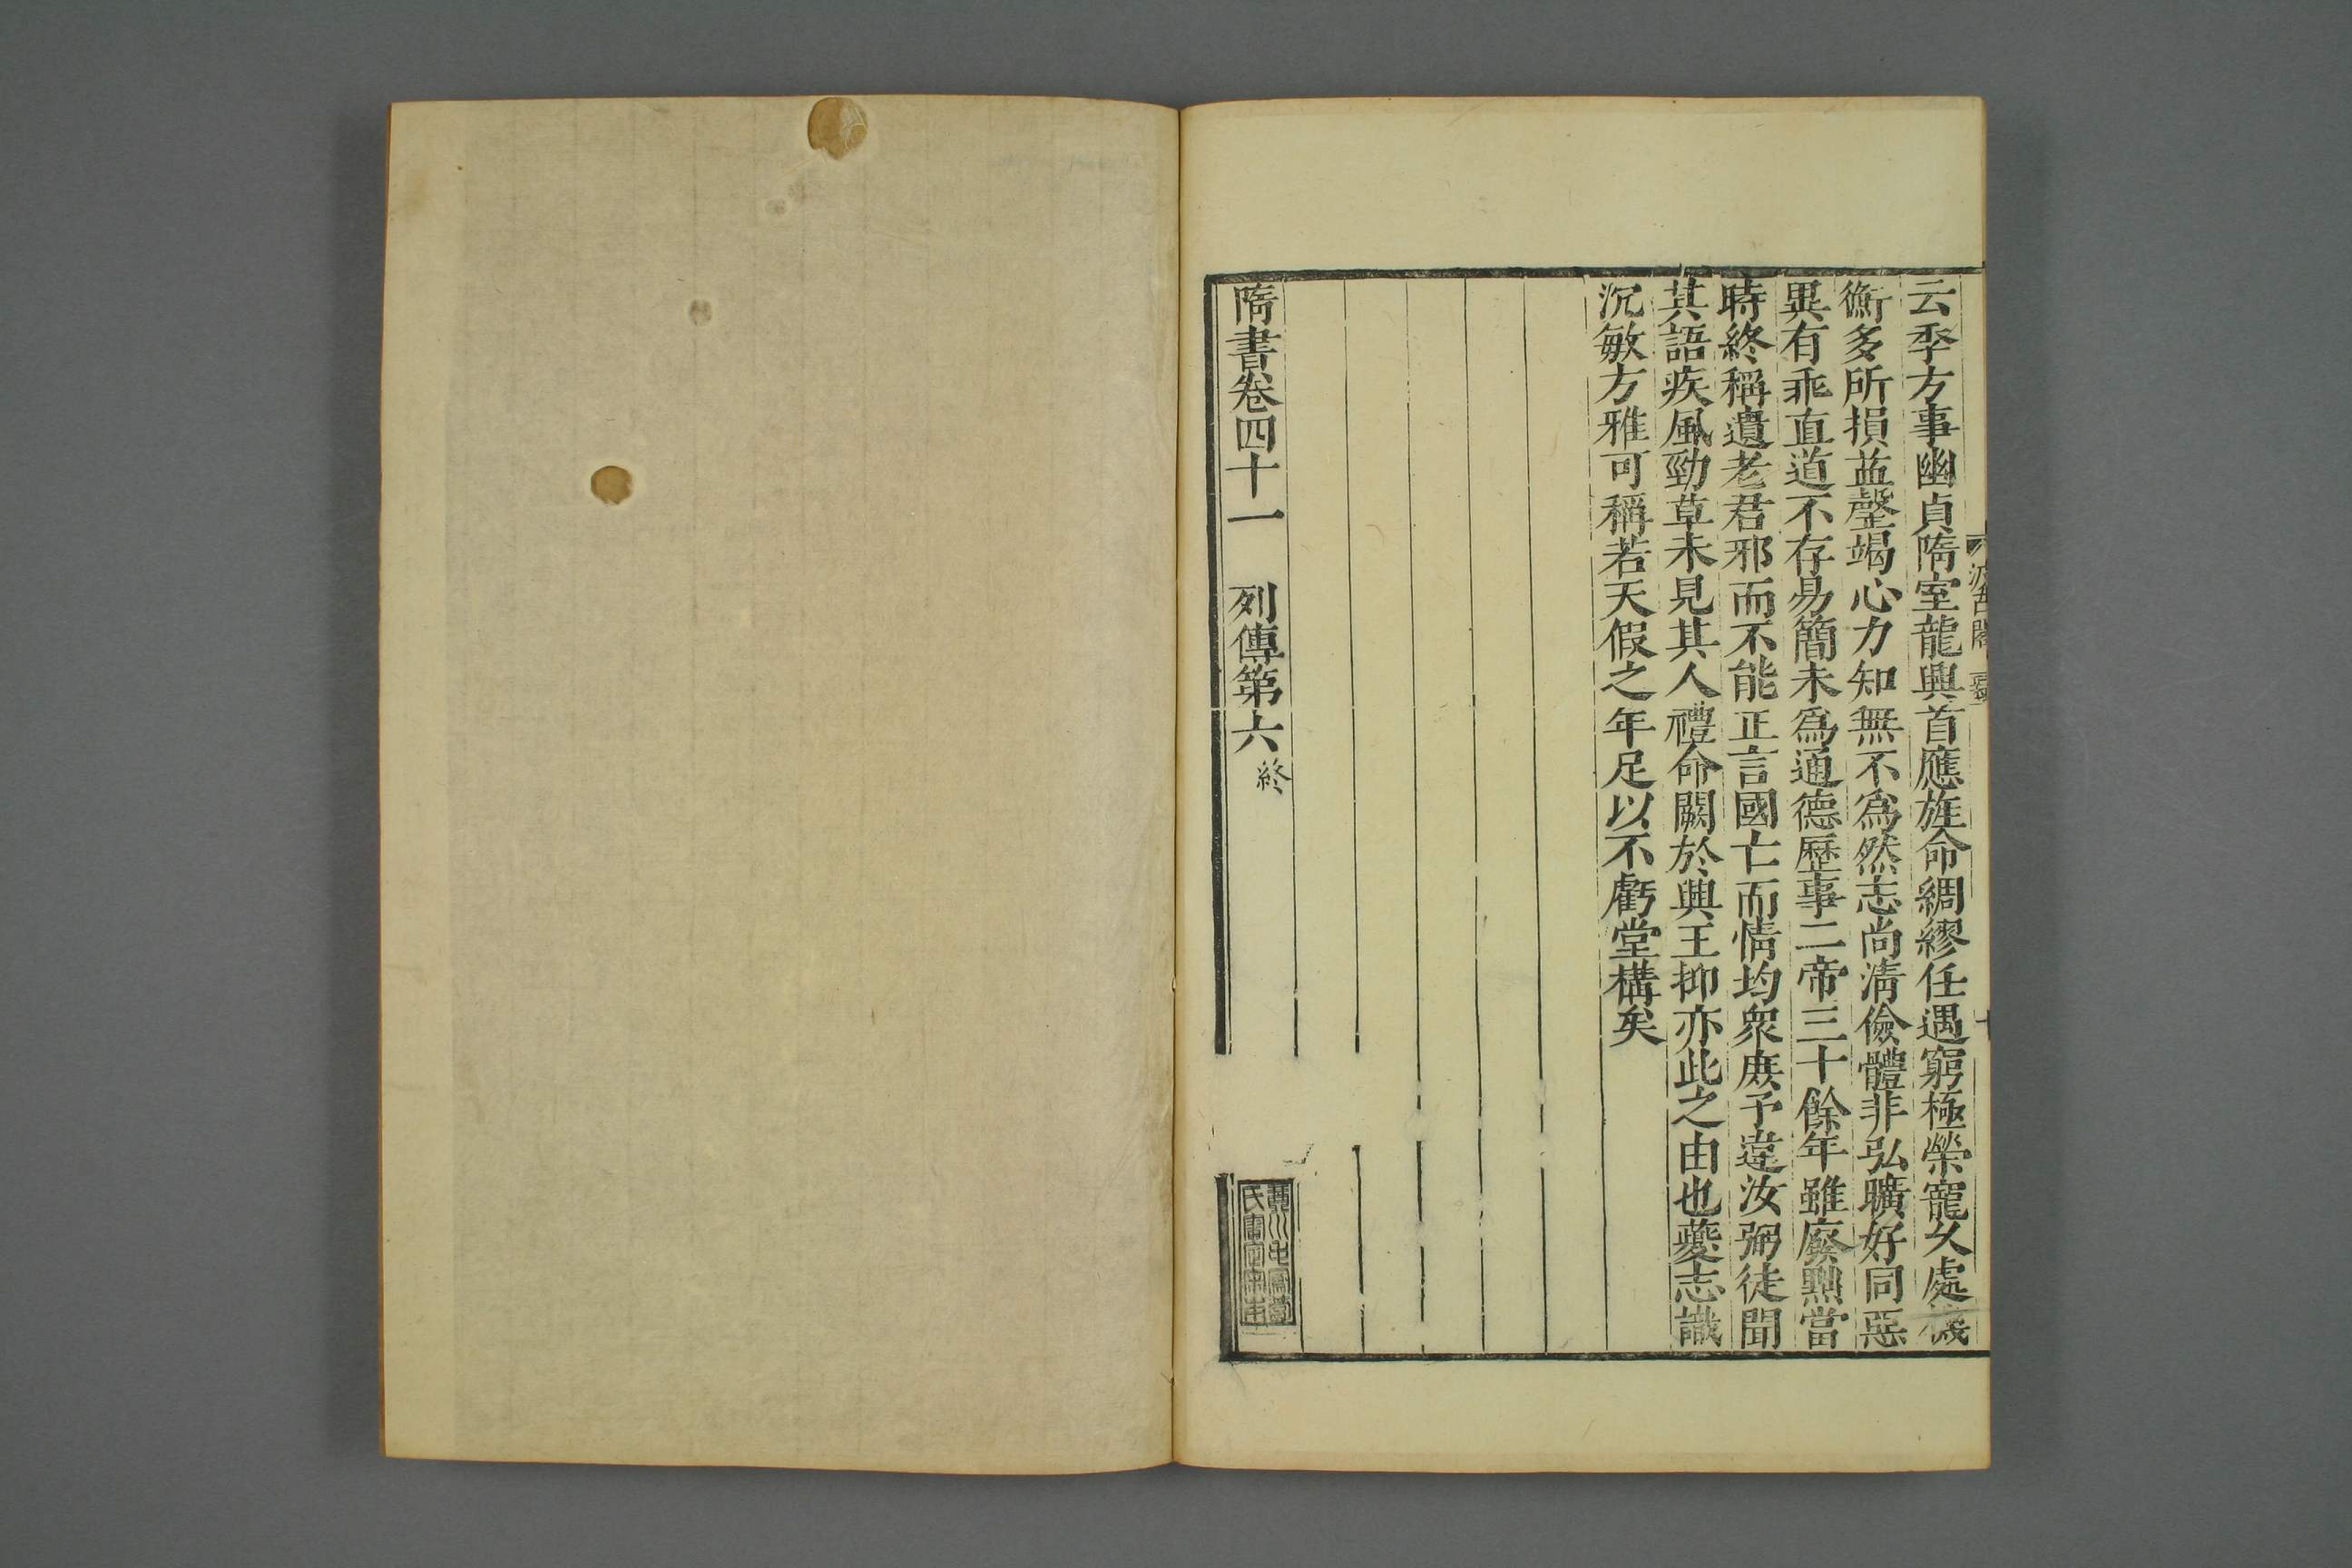 云季方事幽貞隋室龍興首應旌命綢繆任遇窮極榮寵久處機
衡多所損益罄竭心力知無不爲然志尚清儉體非弘曠好同惡
異有乖直道不存易簡未爲通德歷事二帝三十餘年雖廢黜當
時終稱遺老君邪而不能正言國亡而情均衆庶予違汝弼徒聞
其語疾風勁草未見其人禮命闕於興王抑亦此之由也夔志識
沉敏方雅可稱若天假之年足以不虧堂構矣
隋書卷四十一　列傳第六終